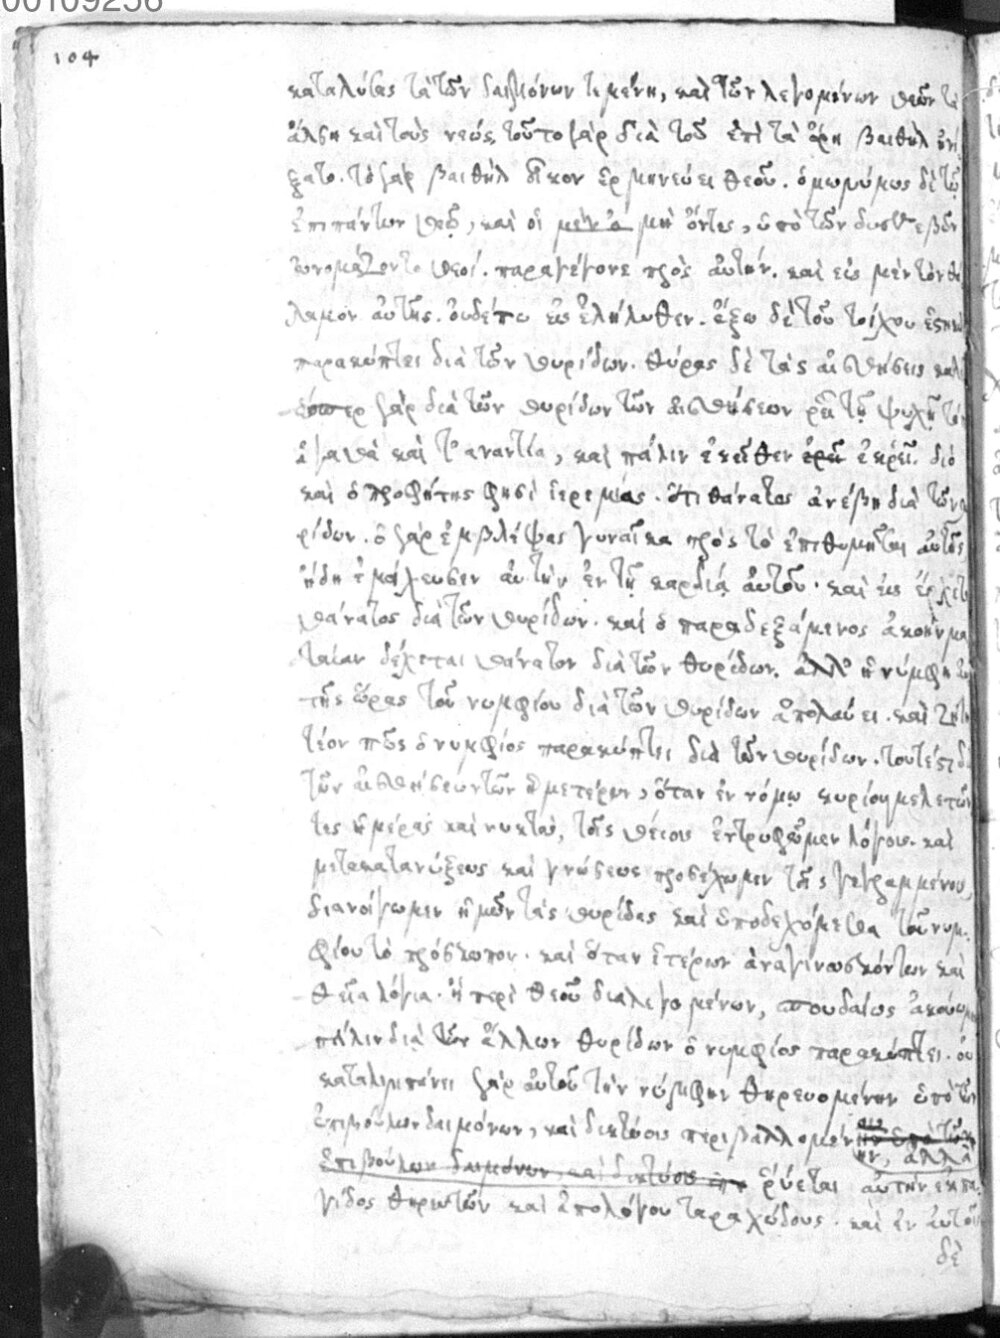 00109256
104
καταλύσας τὰ τῶν δαιμόνων τεμένη, καὶ τῶν λεγομένων θεῶν τὰ
ἄλση καὶ τοὺς νεώς, τοῦτο γὰρ διὰ τοῦ ἐπὶ τὰ ὄρη βαιθὴλ ᾐνί
ξατο. τὸ γὰρ βαιθὴλ οἶκον ἑρμηνεύει θεοῦ. ὁμωνύμως δὲ τῷ
ἐπὶ πάντων θεῷ, καὶ οἱ μὴ ὄντες, ὑπὸ τῶν δυσσεβῶν
ὠνομάζοντο θεοί. παραγέγονε πρὸς αὐτήν. καὶ εἰς μὲν τὸν θά
λαμον αὐτῆς. οὐδέπω εἰσελήλυθεν. ἔξω δὲ τοῦ τοίχου ἑστηκὼς
παρακύπτει διὰ τῶν θυρίδων. θύρας δὲ τὰς αἰσθήσεις καλεῖ
ὥσπερ γὰρ διὰ τῶν θυρίδων τῶν αἰσθήσεων ῥεῖ τῇ ψυχῇ τά
ἀγαθὰ καὶ τὰ ἐναντία, καὶ πάλιν ἐκεῖθεν ἐκρεῖ. διὸ
καὶ ὁ προφήτης φησὶ ἱερεμίας. ὅτι θάνατος ἀνέβη διὰ τῶν θυ
ρίδων. ὁ γὰρ ἐμβλέψας γυναῖκα πρὸς τὸ ἐπιθυμῆσαι αὐτῆς
ἤδη ἐμοίχευσεν αὐτὴν ἐν τῇ καρδίᾳ αὐτοῦ. καὶ εἰσέρχεται
θάνατος διὰ τῶν θυρίδων. καὶ ὁ παραδεξάμενος ἀκοὴν μα
ταίαν δέχεται θάνατον διὰ τῶν θυρίδων. ἀλλ' ἡ νύμφη
τῆς ὥρας τοῦ νυμφίου διὰ τῶν θυρίδων ἀπολαύει. καὶ ζητη
τέον πῶς ὁ νυμφίος παρακύπτει διὰ τῶν θυρίδων. τουτέστι διὰ
τῶν αἰσθήσεων τῶν ἡμετέρων, ὅταν ἐν νόμῳ κυρίου μελετῶν
τες ἡμέρας καὶ νυκτὸς, τοῖς θείοις ἐντρυφῶμεν λόγοις. καὶ
μετὰ κατανύξεως καὶ γνώσεως προσέχωμεν τοῖς γεγραμμένοις,
διανοίγωμεν ἡμῶν τὰς θυρίδας καὶ ὑποδεχόμεθα τοῦ νυμ
φίου τὸ πρόσωπον. καὶ ὅταν ἑτέρων ἀναγινωσκόντων καὶ
θεῖα λόγια. ἢ περὶ θεοῦ διαλεγομένων, σπουδαίως ἀκούωμεν
πάλιν διὰ τῶν ἄλλων θυρίδων ὁ νυμφίος παρακύπτει. οὐ
καταλιμπάνει γὰρ αὐτοῦ τὴν νύμφην θηρευομένην ὑπὸ τῶν
ἐπιβούλων δαιμόνων, καὶ δικτύοις περιβαλλομένην, ἀλλὰ
ἐπιβούλων δαιμόνων, καὶ δικτύοις ῥύεται αὐτὴν ἐκ πα
γίδος θηρευτῶν καὶ ἀπὸ λόγου ταραχώδους. καὶ ἐν αὐτοῖς
δὲ